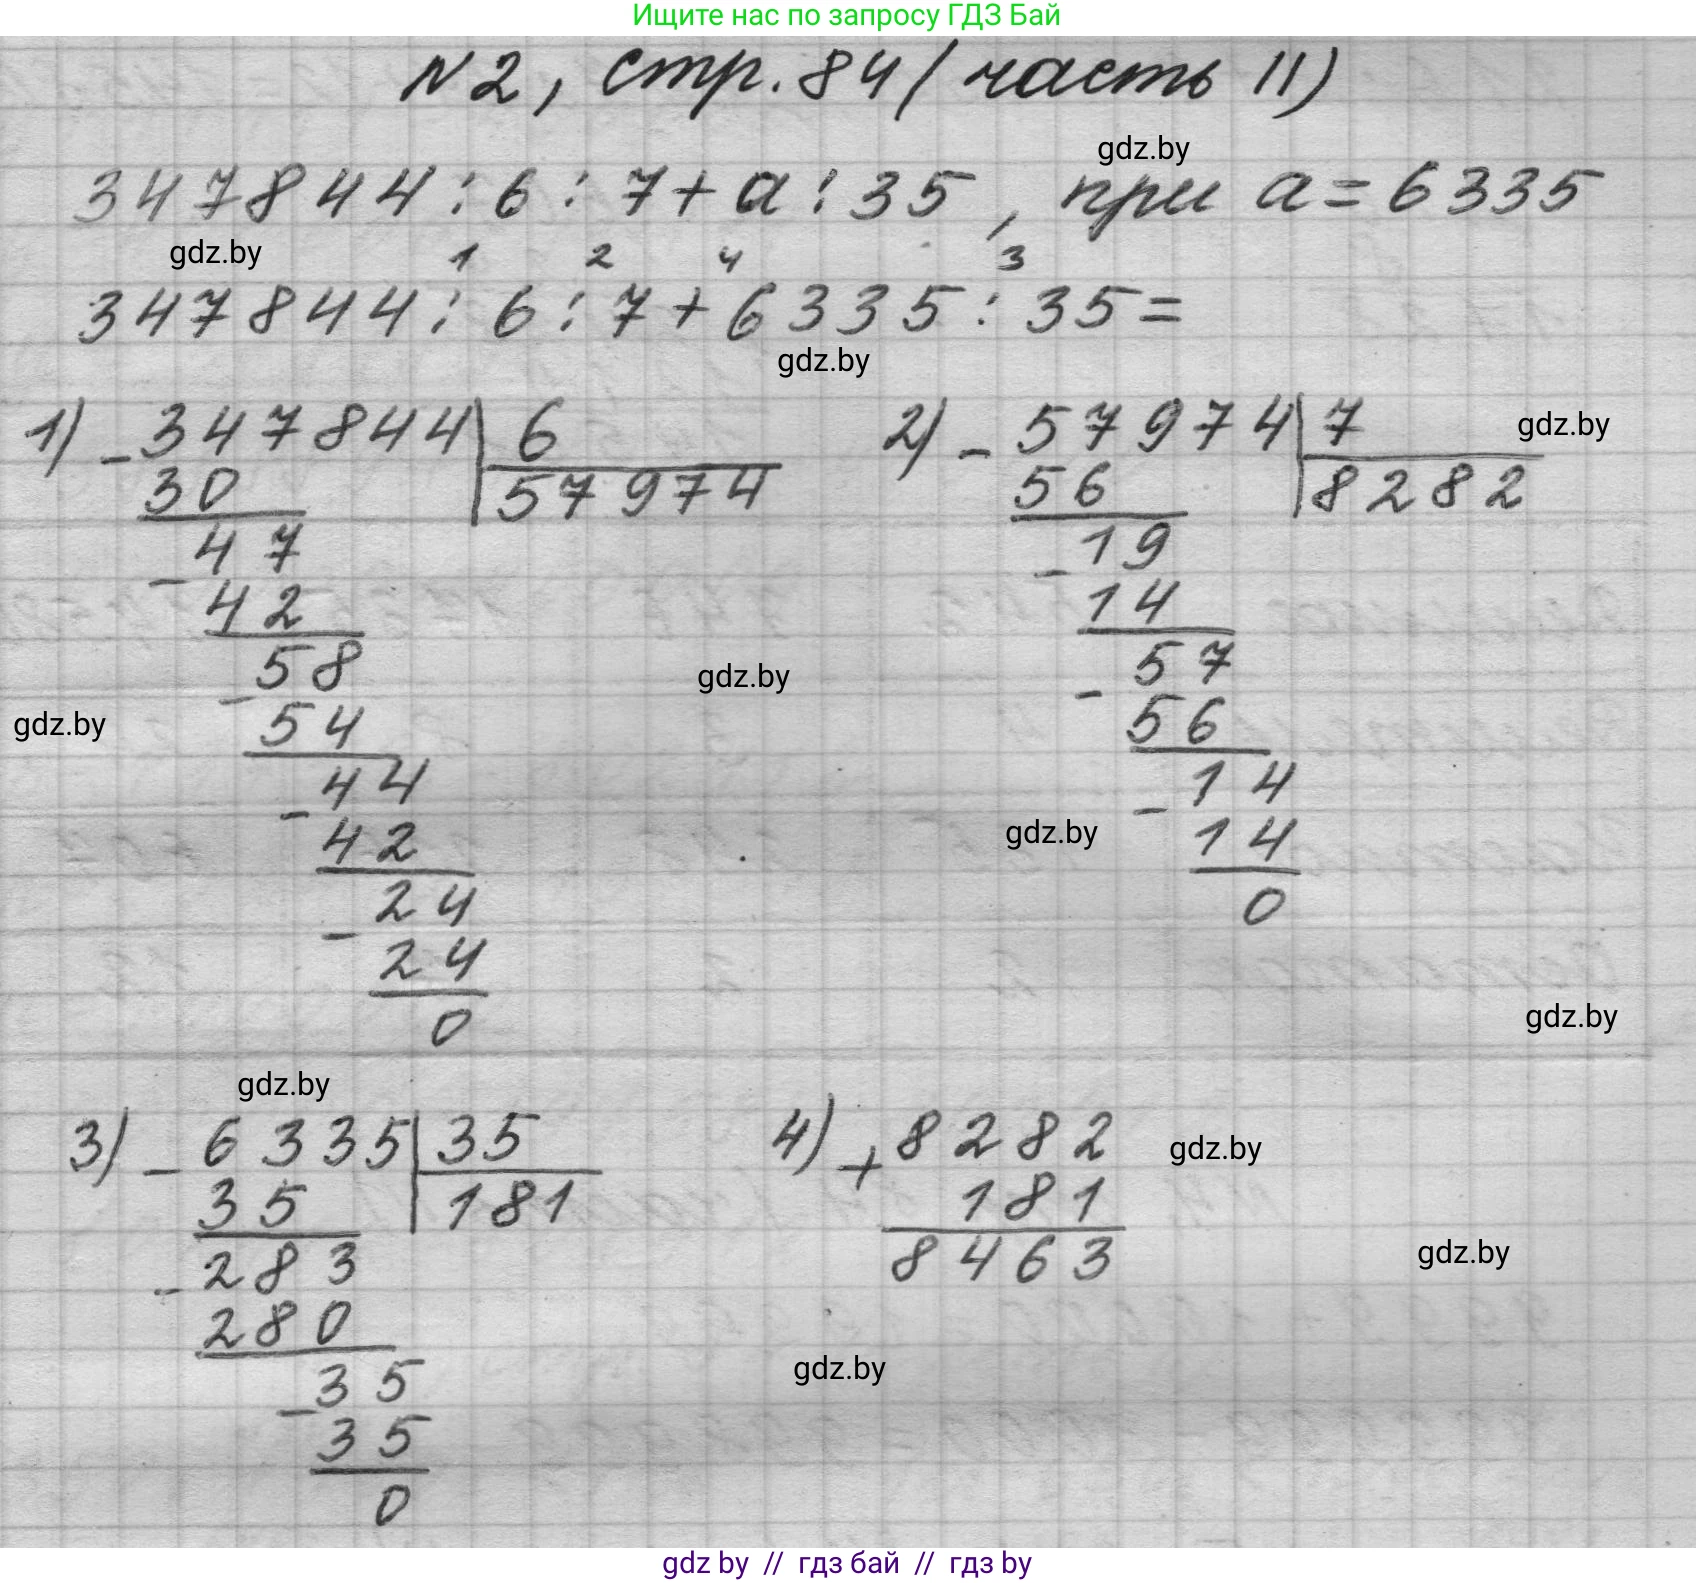 Ищите нас по запросу ГДЗ Бай
N2, стр. 84 (часть II)
gdz.by
347844 : 6 : 7 + a : 35, при a = 6335
gdz.by
1 2 4 3
347844 : 6 : 7 + 6335 : 35 =
gdz.by
1) - 347844 | 6
30 57974
- 47
42
- 58
54
- 44
42
- 24
24
0
2) - 57974 | 7
56 8282
- 19
14
- 57
56
- 14
14
0
gdz.by
gdz.by
gdz.by
gdz.by
gdz.by
gdz.by
3) - 6335 | 35
35 181
- 283
280
- 35
35
0
4) + 8282
181
8463
gdz.by
gdz.by
gdz.by
gdz by // гдз бай // гдз by